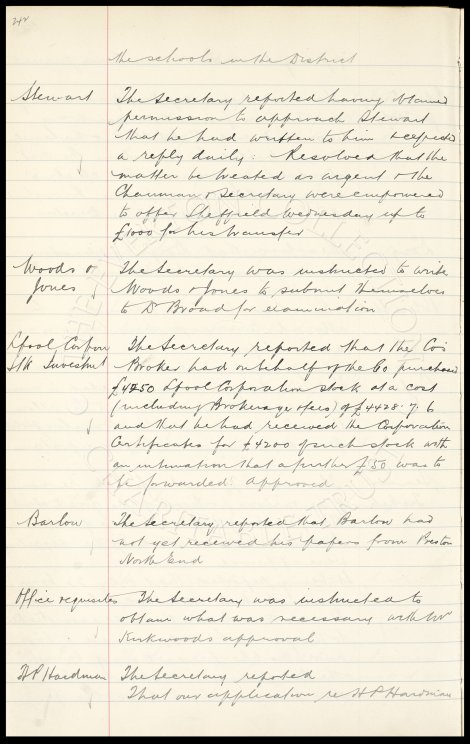 242
the schools in the District
Stewart The Secretary reported having obtained
permission to approach Stewart
that he had written to him & expected
a reply daily: Resolved that the
matter be treated as urgent & the
Chairman & Secretary were empowered
to offer Sheffield Wednesday up to
£1000 for his transfer
Woods & The Secretary was instructed to write
Jones Woods & Jones to submit themselves
to Dr Broad for examination
Lpool Corpon The Secretary reported that the Co's
Stk Investmt Broker had on behalf of the Co purchased
£4250 Lpool Corporation stock at a cost
(including Brokerage & fees) of £4428.7.6
and that he had received the Corporation
Certificates for £4200 of such stock with
an intimation that a further £50 was to
be forwarded. Approved
Barlow The Secretary reported that Barlow had
not yet received his papers from Preston
North End
Office requisites The Secretary was instructed to
obtain what was necessary with Mr
Kirkwoods approval
H P Hardman The Secretary reported
That our application re H P Hardman